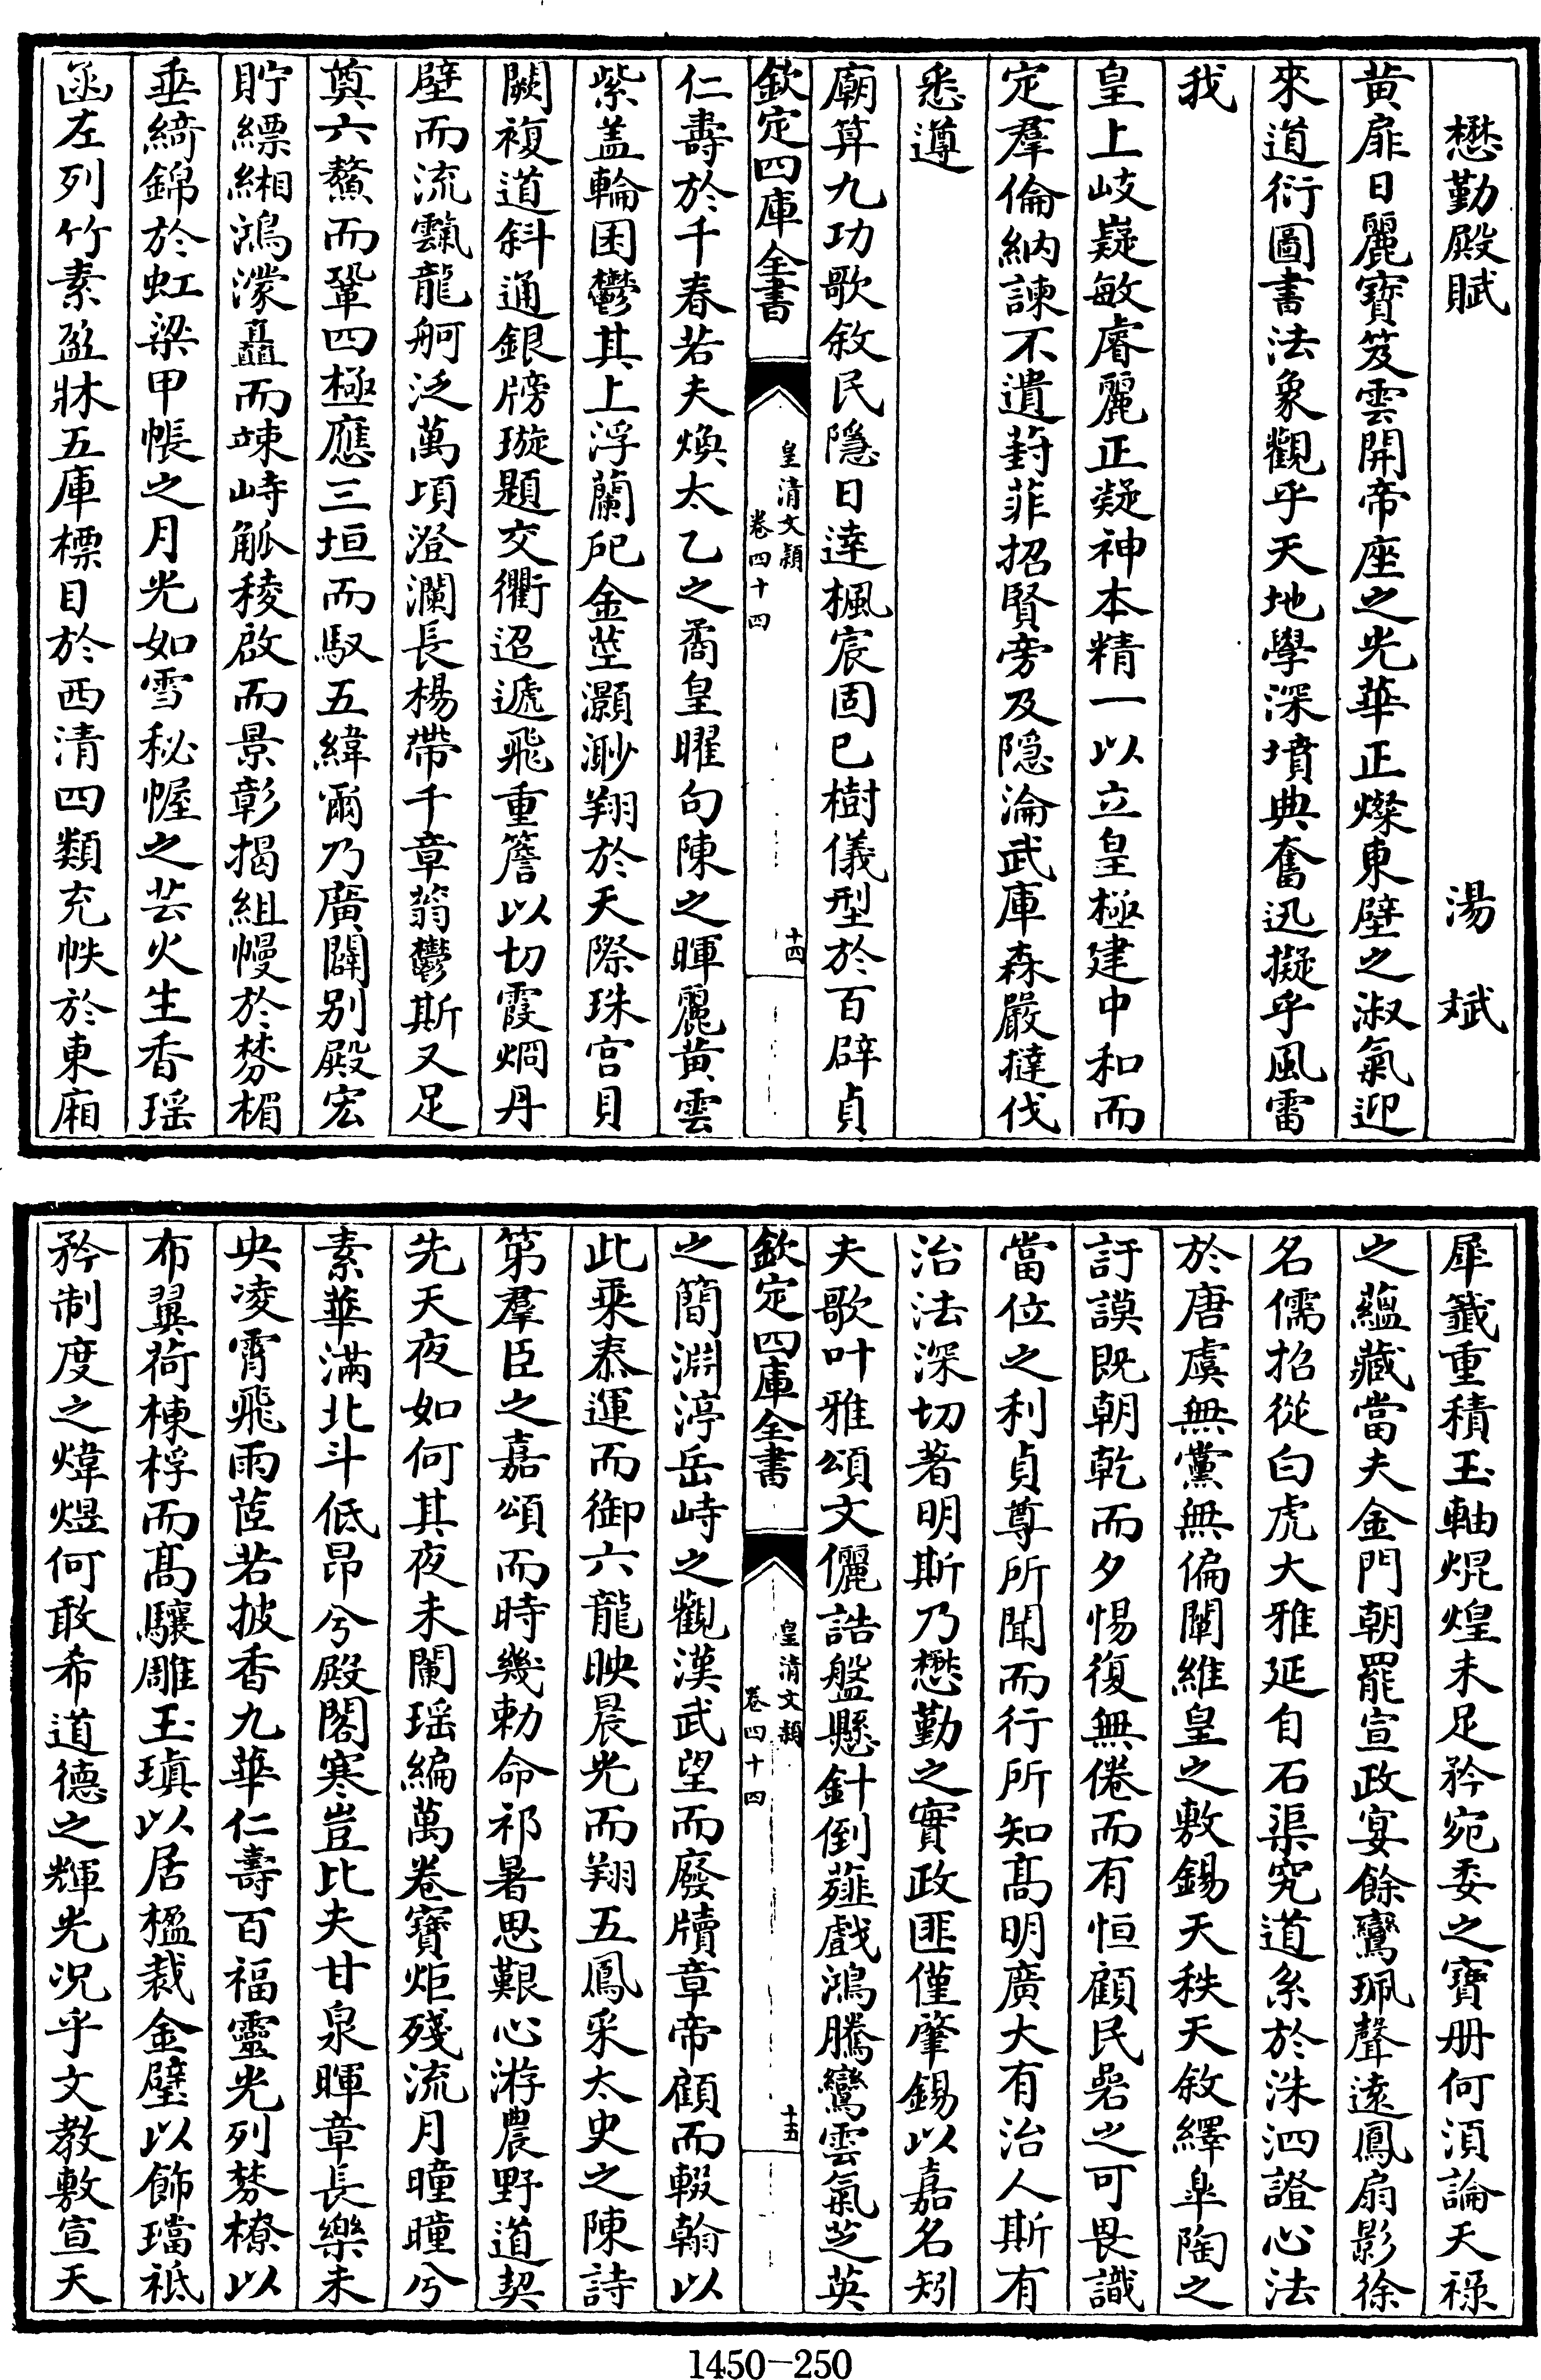 懋勤殿賦　　　　　　　　　　　湯　斌
黄扉日麗寶笈雲開帝座之光華正燦東壁之淑氣迎
來道衍圖書法象觀乎天地學深墳典奮迅擬乎風雷
我
皇上岐嶷敏睿麗正凝神本精一以立皇極建中和而
定羣倫納諫不遺葑菲招賢旁及隠淪武庫森嚴撻伐
悉遵
廟算九功歌敘民隠日達楓宸固已樹儀型於百辟貞
欽定四庫全書
皇清文頴
卷四十四
十四
仁壽於千春若夫煥太乙之矞皇曜句陳之暉麗黄雲
紫盖輪囷鬱其上浮蘭戺金莖灝渺翔於天際珠宫貝
闕複道斜通銀牓璇題交衢迢遞飛重簷以切霞烱丹
壁而流靄龍舸泛萬頃澄瀾長楊帶千章蓊鬱斯又足
奠六鰲而鞏四極應三垣而馭五緯爾乃廣闢别殿宏
貯縹緗鴻濛矗而竦峙觚稜啟而景彰揭組幔於棼楣
垂綺錦於虹梁甲帳之月光如雪秘幄之芸火生香瑶
函左列竹素盈牀五庫標目於西清四類充帙於東廂
犀籤重積玉軸焜煌未足矜宛委之寶册何湏論天禄
之藴藏當夫金門朝罷宣政宴餘鸞珮聲遠鳳扇影徐
名儒招從白虎大雅延自石渠究道系於洙泗證心法
於唐虞無黨無偏闡維皇之敷錫天秩天敘繹臯陶之
訏謨既朝乾而夕惕復無倦而有恒顧民碞之可畏識
當位之利貞尊所聞而行所知髙明廣大有治人斯有
治法深切著明斯乃懋勤之實政匪僅肇錫以嘉名矧
夫歌叶雅頌文儷誥盤懸針倒薤戲鴻騰鸞雲氣芝英
欽定四庫全書
皇清文頴
卷四十四
十五
之簡淵渟岳峙之觀漢武望而廢牘章帝顧而輟翰以
此乗泰運而御六龍映晨光而翔五鳳采太史之陳詩
第羣臣之嘉頌而時幾勅命祁暑思艱心游農野道契
先天夜如何其夜未闌瑶編萬卷寶炬殘流月曈曈兮
素華滿北斗低昂兮殿閣寒豈比夫甘泉暉章長樂未
央凌霄飛雨茝若披香九華仁壽百福靈光列棼橑以
布翼荷棟桴而髙驤雕玉瑱以居楹裁金璧以飾璫祗
矜制度之煒煜何敢希道德之輝光况乎文教敷宣天
1450-250